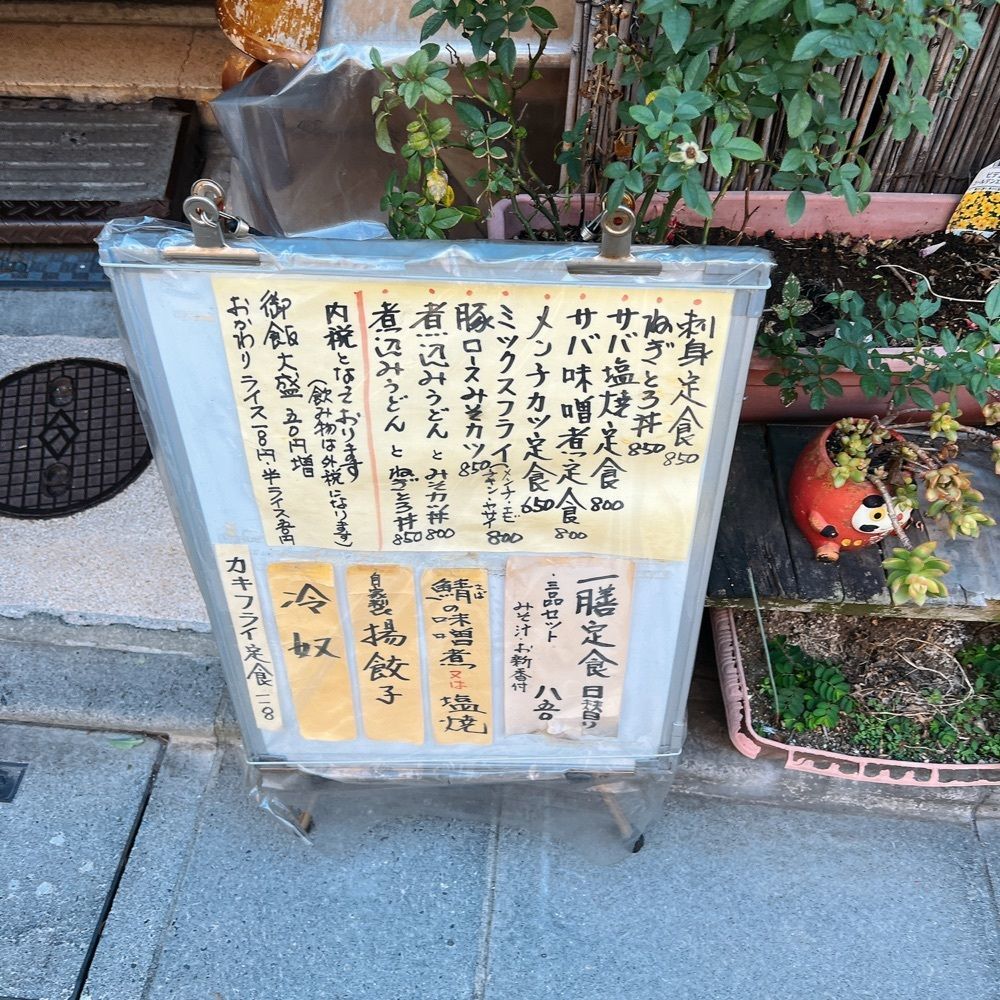 刺身定食 850
ねぎとろ丼 850
サバ塩焼定食 800
サバ味噌煮定食 800
メンチカツ定食 650
ミックスフライ(メンチ・エビ チキン・ヤサイ 800
豚ロースみそカツ 850
煮込みうどんとみそカツ丼 800
煮込みうどんとねぎとろ丼 850
内税となっております
(飲み物は外税になります)
御飯大盛 五〇円増
おかわりライス 円・半ライス 円
一膳定食 日替り
・三品セット 八五〇
みそ汁・お新香付
鯖の味噌煮又は塩焼
さば
自家製揚餃子
冷奴
カキフライ定食